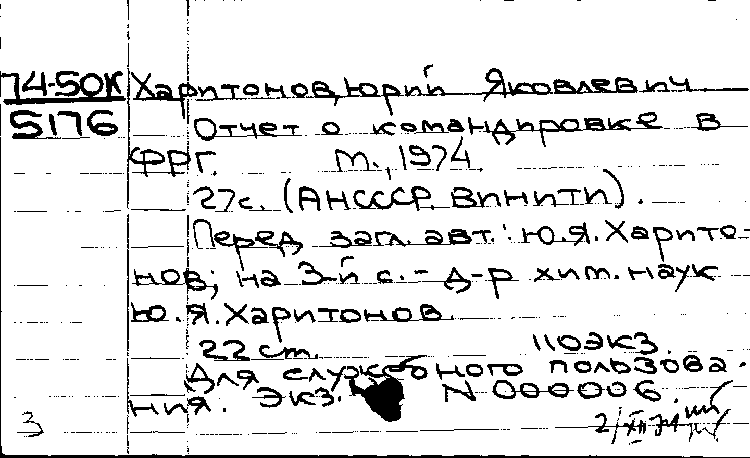 74-50К Харитонов, Юрий Яковлевич.
5176 Отчет о командировке в
ФРГ. М., 1974.
27с. (АНСССР. ВИНИТИ).
Перед загл. авт.: Ю.Я.Харито-
нов; на 3-й с. - д-р хим. наук
Ю.Я.Харитонов.
22 см. 110экз.
Для служебного пользова-
ния. Экз. N 000006.
3 2/XII 74